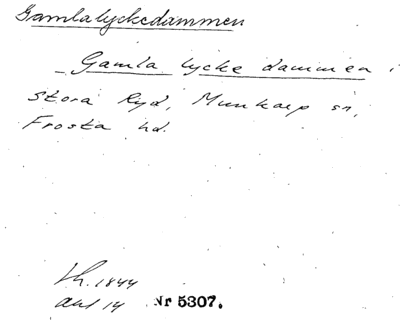 Gamlalyckedammen
Gamla lycke dammen i
Stora Ryd, Munkarp sn,
Frosta hd.
Lh. 1844
akt 14 Nr 5307.